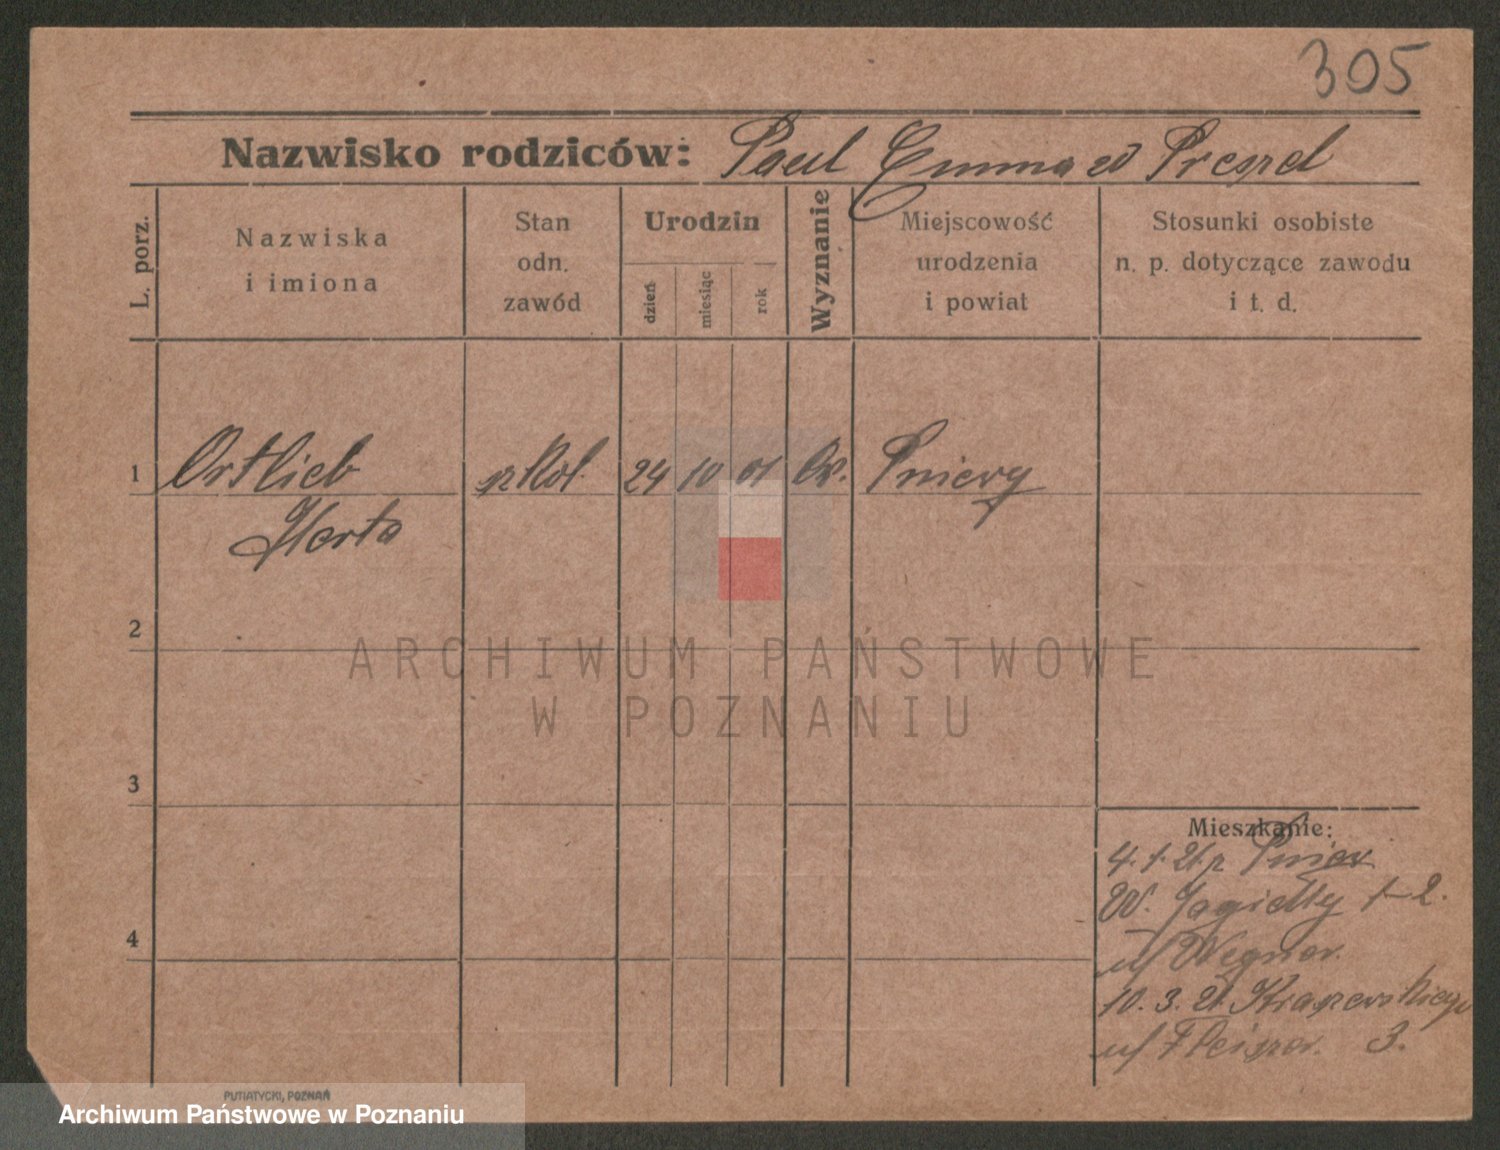 305
Nazwisko rodziców: Paul Emma
L. porz.
Nazwiska
i imiona
Stan
odn.
zawód
Urodzin
dzień
miesiąc
rok
Wyznanie
Miejscowość
urodzenia
i powiat
Stosunki osobiste
n. p. dotyczące zawodu
i t. d.
1 Ortlieb szkol. 24 10 01 Ew. Pniewy
Herta
2
3
4
Mieszkanie:
4. 1. 21. z Pniew
W. Jagiełły 1-2.
u/ Wegner.
10. 3. 21. Kraszewskiego
u/ 3.
ARCHIWUM PAŃSTWOWE
W POZNANIU
PUTIATYCKI, POZNAŃ
Archiwum Państwowe w Poznaniu